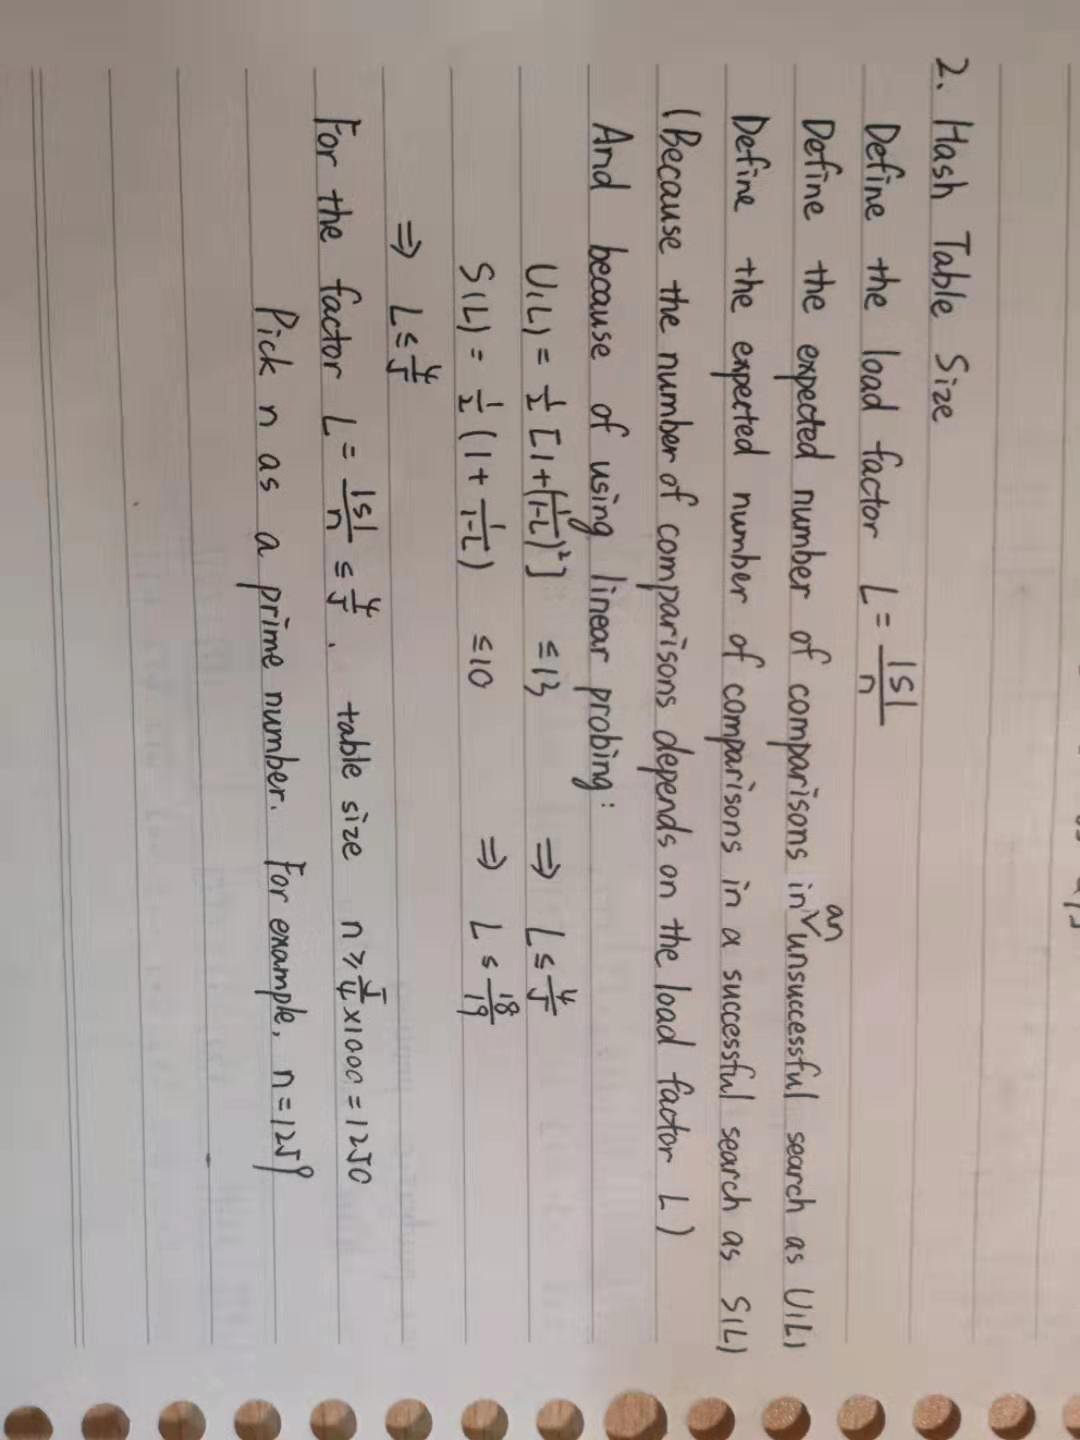 2. Hash Table Size
Define the load factor L = |S|/n
Define the expected number of comparisons in an unsuccessful search as U(L)
Define the expected number of comparisons in a successful search as S(L)
(Because the number of comparisons depends on the load factor L)
And because of using linear probing:
U(L) = 1/2 [1+(1/(1-L))²] ≤ 13 ⇒ L ≤ 4/5
S(L) = 1/2 (1 + 1/(1-L)) ≤ 10 ⇒ L ≤ 18/19
⇒ L ≤ 4/5
For the factor L = |S|/n ≤ 4/5. table size n ≥ 5/4 × 1000 = 1250
Pick n as a prime number. For example, n = 1259